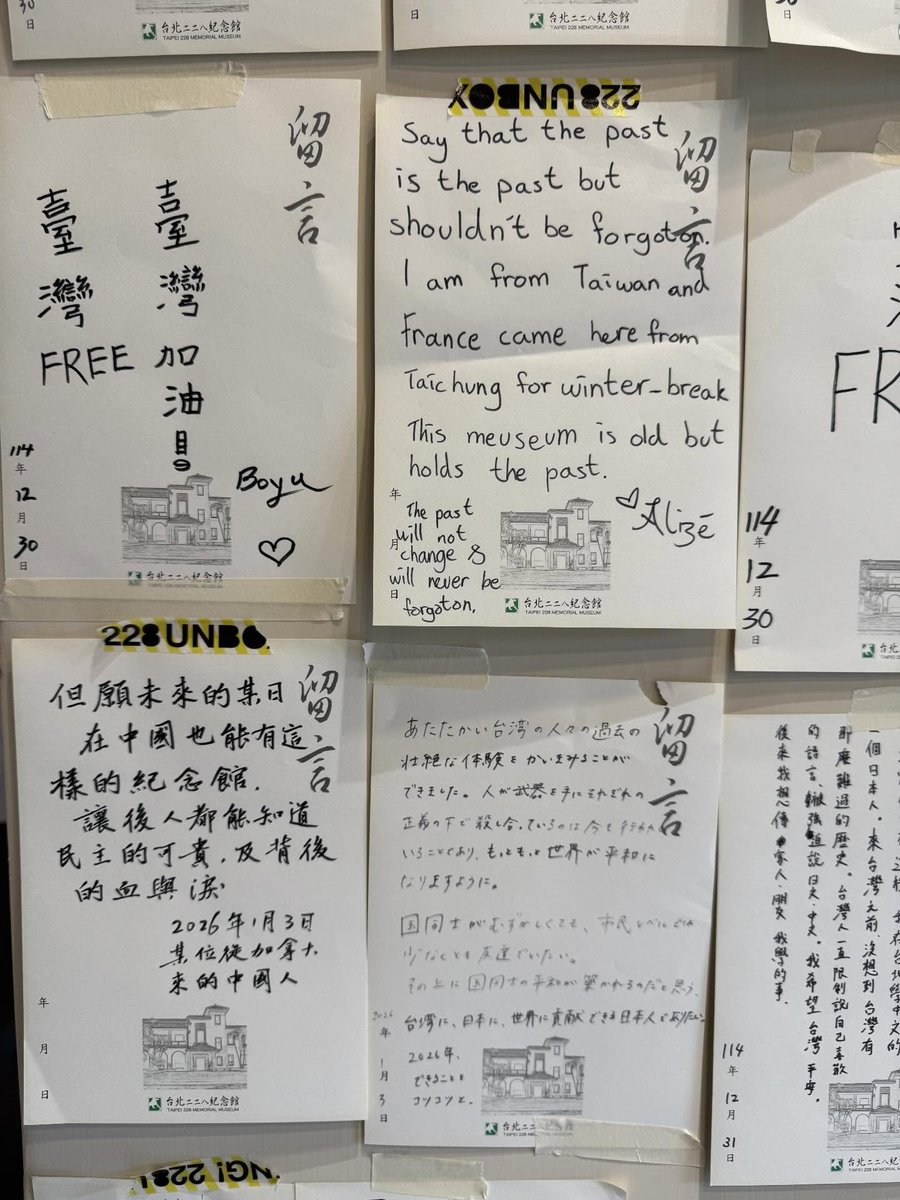 30
日
台北二二八紀念館
TAIPEI 228 MEMORIAL MUSEUM
日
台北二二八紀念館
TAIPEI 228 MEMORIAL MUSEUM
30
日
留言
臺灣加油
臺灣 FREE
Boyu
114
年
12
月
30
日
台北二二八紀念館
228 UNBOX
留言
Say that the past
is the past but
shouldn't be forgoton.
I am from Taiwan and
France came here from
Taichung for winter-break
This meuseum is old but
holds the past.
Alizé
The past
will not
change &
will never be
forgoton.
年
月
日
台北二二八紀念館
TAIPEI 228 MEMORIAL MUSEUM
FR
114
年
12
月
30
日
台北
TAIPEI
228 UNBO
留言
但願未來的某日
在中國也能有這
樣的紀念館.
讓後人都能知道
民主的可貴.及背後
的血與淚
2026年1月3日
某位從加拿大
來的中國人
年
月
日
台北二二八紀念館
TAIPEI 228 MEMORIAL MUSEUM
留言
あたたかい台湾の人々の過去の
壮絶な体験をかいまみることが
できました。人が武器を手にそれぞれの
正義の下で殺し合っているのは今も行われて
いることであり、もっともっと世界が平和に
なりますように。
国同士がむずかしくても、市民レベルでは
少なくとも友達でいたい。
その上に国同士の平和が築かれるのだと思う。
台湾に、日本に、世界に貢献できる日本人でありたい。
2026年、
できることを
コツコツと。
2026
年
1
月
3
日
台北二二八紀念館
TAIPEI 228 MEMORIAL MUSEUM
我在台北學中文的
一個日本人。來台灣之前,沒想到台灣有
那麼難過的歷史。台灣人一直限制說自己喜歡
的語言、被強迫說日文、中文。我希望台灣平安。
後來我想傳家人、朋友我學的事。
114
年
12
月
31
日
台北二二八紀念
TAIPEI 228 MEMORIAL
NG! 228!